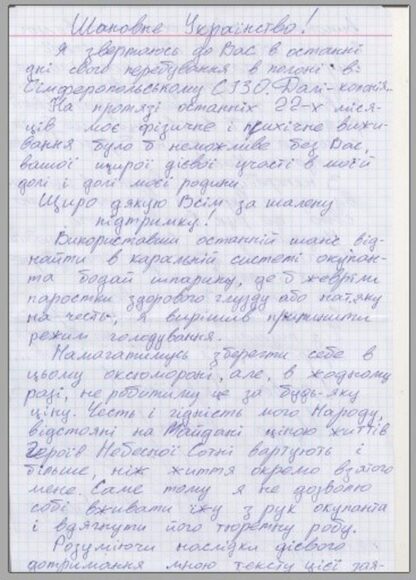 Шановне Українство!
Я звертаюсь до Вас в останні
дні свого перебування в полоні в:
Сімферопольському СІЗО. Далі- колонія.
На протязі останніх 22-х міся-
ців моє фізичне і психічне вижи-
вання було б неможливе без Вас,
вашої щирої дієвої участі в моїй
долі і долі моєї родини.
Щиро дякую Всім за шалену
підтримку!
Використавши останній шанс від-
найти в каральній системі окупан-
та бодай шпарину, де б жевріли
паростки здорового глузду або натяку
на честь, я вирішив припинити
режим голодування.
Намагатимусь зберегти себе в
цьому оксюмороні, але, в жодному
разі, не робитиму це за будь-яку
ціну. Честь і гідність мого Народу,
відстояні на Майдані ціною життів
Героїв Небесної Сотні вартують і
більше, ніж життя окремо взятого
мене. Саме тому я не дозволю
собі вживати їжу з рук окупанта
і вдягнути його тюремну робу.
Розуміючи наслідки дієвого
дотримання мною тексту цієї зая-